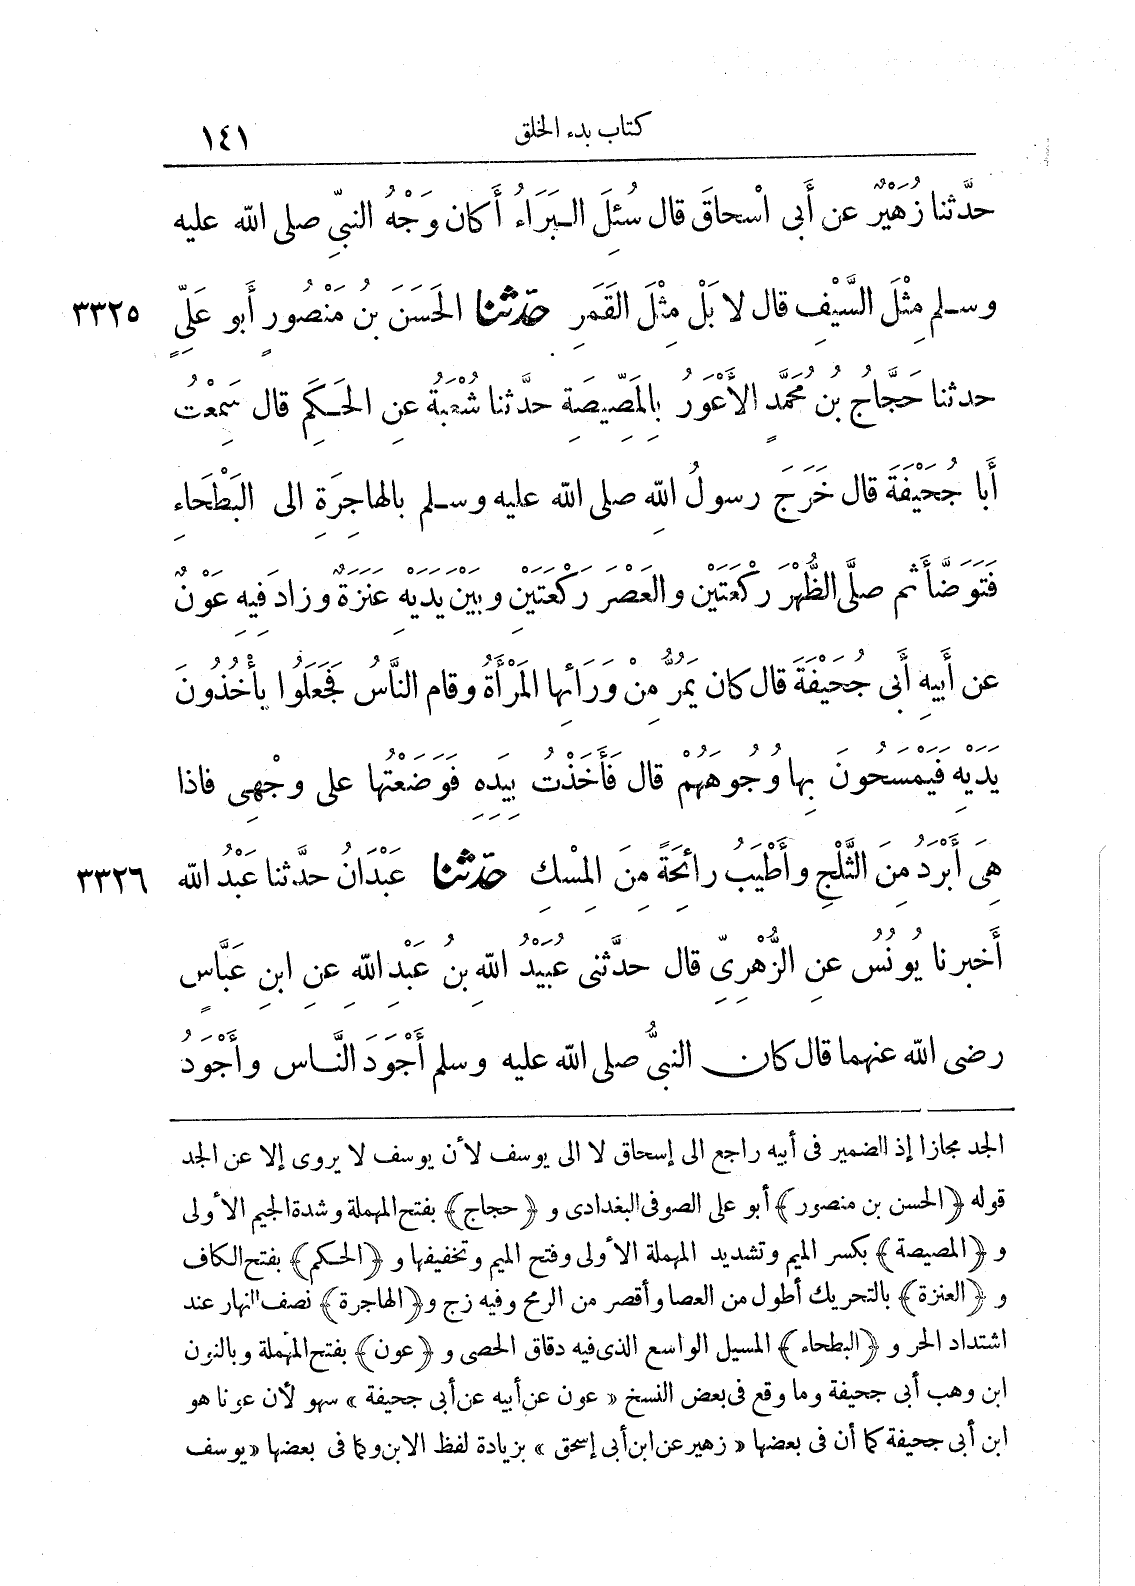 كتاب بدء الخلق ١٤١
حدَّثنا زُهَيْرٌ عن أَبى اسْحاقَ قال سُئِلَ البَرَاءُ أَكان وَجْهُ النبىِّ صلى الله عليه
وسلم مِثْلَ السَّيْفِ قال لا بَلْ مِثْلَ القَمَرِ حدّثنا الحَسَنُ بنُ مَنْصُورٍ أَبو عَلِىٍّ ٣٣٢٥
حدثنا حَجَّاجُ بنُ مُحَمَّدٍ الأَعْوَرُ بِالمَصِّيصَةِ حدَّثنا شُعْبَةُ عنِ الحَكَمِ قال سَمِعْتُ
أَبا جُحَيْفَةَ قال خَرَجَ رسولُ اللهِ صلى الله عليه وسلم بالهاجِرَةِ الى البَطْحَاءِ
فَتَوَضَّأَ ثم صلَّى الظُّهْرَ رَكْعَتَيْنِ والعَصْرَ رَكْعَتَيْنِ وبَيْنَ يَدَيْهِ عَنَزَةٌ وزادَ فِيهِ عَوْنٌ
عن أَبِيهِ أَبى جُحَيْفَةَ قال كان يَمُرُّ مِنْ وَرَائِها المَرْأَةُ وقام النَّاسُ فَجَعَلُوا يَأْخُذُونَ
يَدَيْهِ فَيَمْسَحُونَ بِها وُجُوهَهُمْ قال فَأَخَذْتُ بِيَدِهِ فَوَضَعْتُها على وجْهِى فاذا
هِىَ أَبْرَدُ مِنَ الثَّلْجِ وأَطْيَبُ رائِحَةً مِنَ المِسْكِ حدّثنا عَبْدَانُ حدَّثنا عَبْدُ الله ٣٣٢٦
أَخبرنا يُونُسُ عنِ الزُّهْرِىِّ قال حدَّثنى عُبَيْدُ اللهِ بنُ عَبْدِ اللهِ عنِ ابنِ عَبَّاسٍ
رضى الله عنهما قال كان النبىُّ صلى الله عليه وسلم أَجْوَدَ النَّاسِ وأَجْوَدُ
الجد مجازا إذ الضمير فى أبيه راجع الى إسحاق لا الى يوسف لأن يوسف لا يروى إلا عن الجد
قوله ﴿الحسن بن منصور﴾ أبو على الصوفى البغدادى و ﴿حجاج﴾ بفتح المهملة وشدة الجيم الأولى
و ﴿المصيصة﴾ بكسر الميم وتشديد المهملة الأولى وفتح الميم وتخفيفها و ﴿الحكم﴾ بفتح الكاف
و ﴿العنزة﴾ بالتحريك أطول من العصا وأقصر من الرمح وفيه زج و ﴿الهاجرة﴾ نصف النهار عند
اشتداد الحر و ﴿البطحاء﴾ المسيل الواسع الذى فيه دقاق الحصى و ﴿عون﴾ بفتح المهملة وبالنون
ابن وهب أبى جحيفة وما وقع فى بعض النسخ « عون عن أبيه عن أبى جحيفة » سهو لأن عونا هو
ابن أبى جحيفة كما أن فى بعضها « زهير عن ابن أبى إسحق » بزيادة لفظ الابن وكما فى بعضها « يوسف